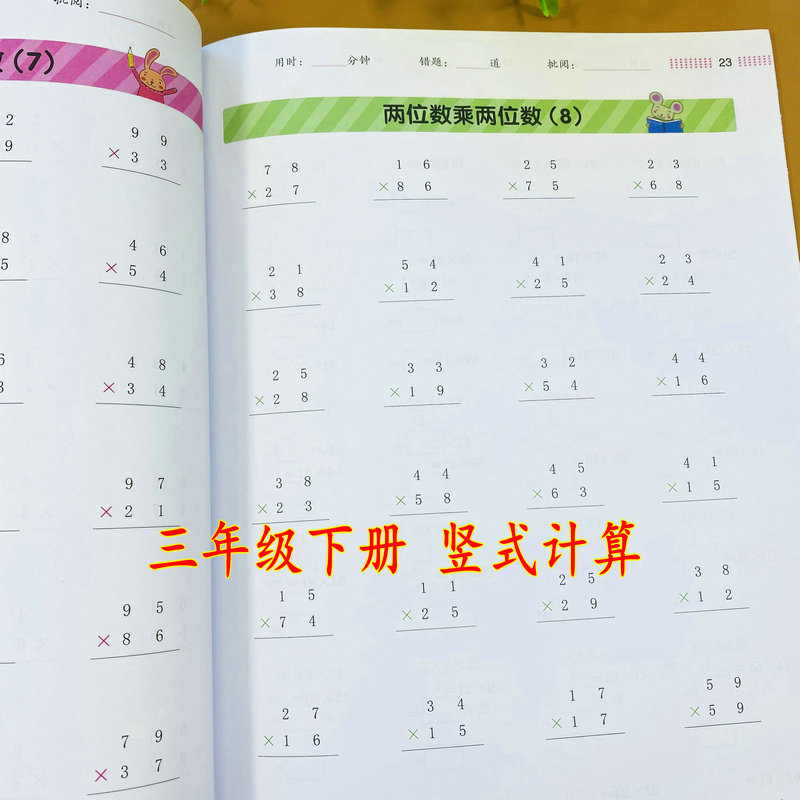 批阅：
(7)
2
9
9 9
× 3 3
8
5
4 6
× 5 4
4 8
× 3 4
9 7
× 2 1
9 5
× 8 6
7 9
× 3 7
用时：______分钟 错题：______道 批阅：__________ 23
两位数乘两位数（8）
7 8 1 6 2 5 2 3
× 2 7 × 8 6 × 7 5 × 6 8
2 1 5 4 4 1 2 3
× 3 8 × 1 2 × 2 5 × 2 4
2 5 3 3 3 2 4 4
× 2 8 × 1 9 × 5 4 × 1 6
3 8 4 4 4 5 4 1
× 2 3 × 5 8 × 6 3 × 1 5
三年级下册 竖式计算
1 5 1 1 2 5 3 8
× 7 4 × 2 5 × 2 9 × 1 2
2 7 3 4 1 7 5 9
× 1 6 × 1 5 × 1 7 × 5 9